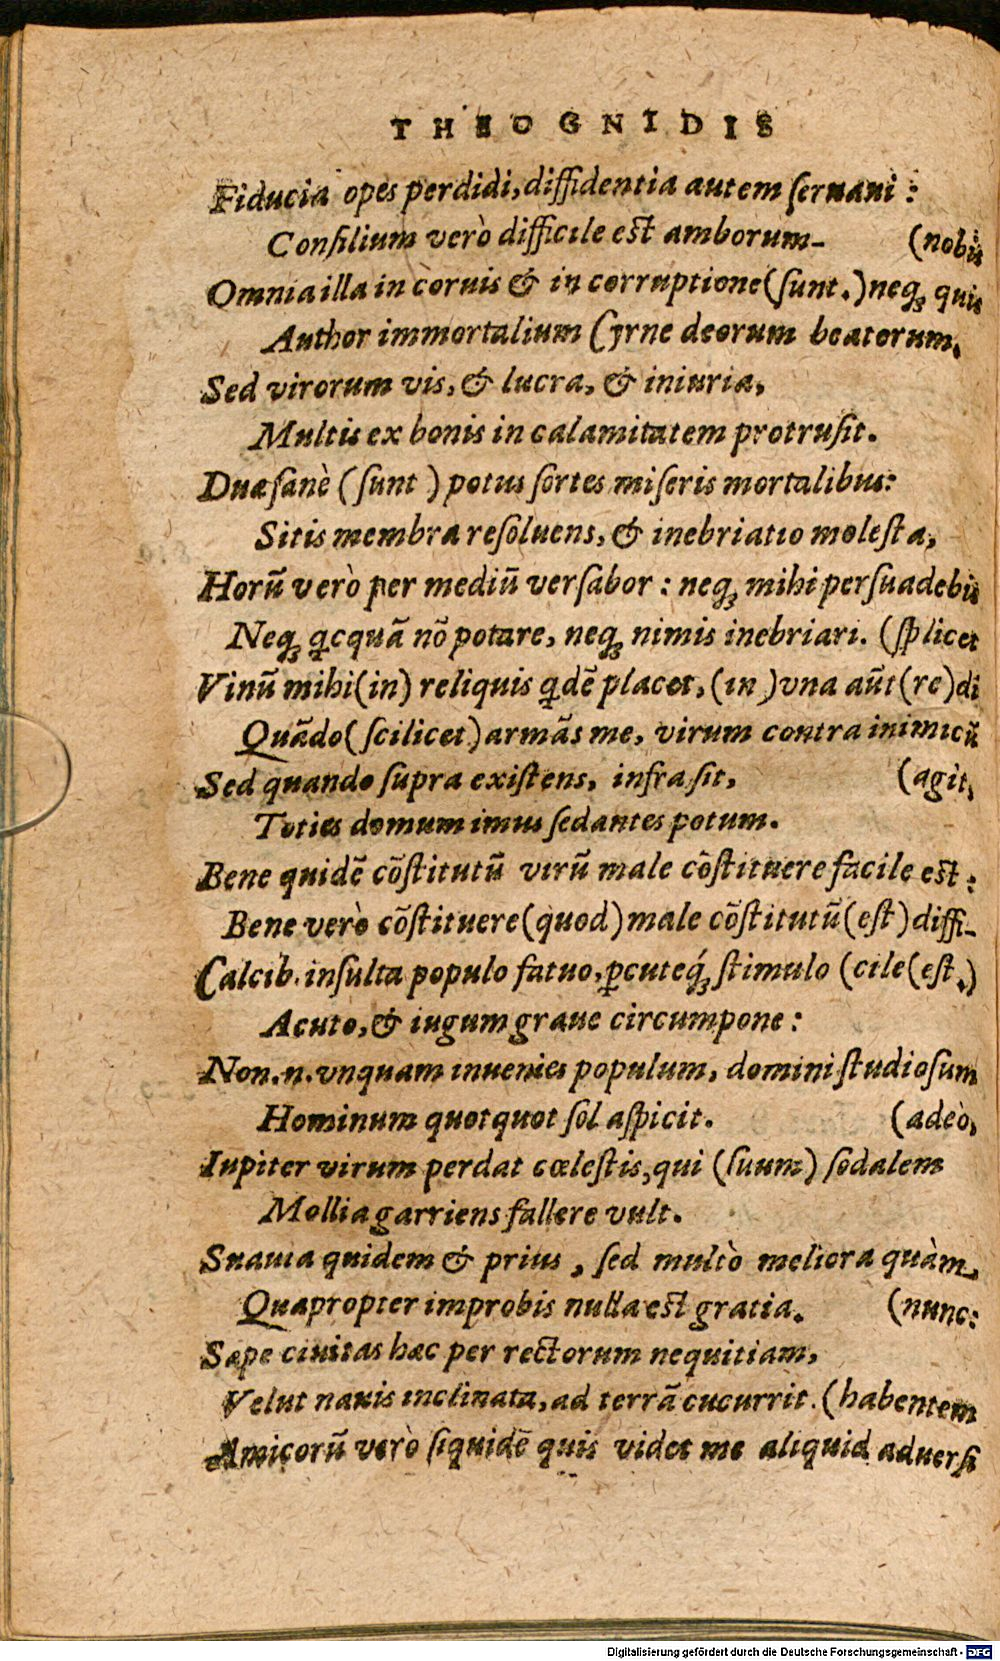 THEOGNIDIS
Fiducia opes perdidi, diffidentia autem ſeruaui:
Conſilium verò difficile eſt amborum- (nobis
Omnia illa in coruis & in corruptione (ſunt.) neqꝫ quis
Author immortalium Cyrne deorum beatorum.
Sed virorum vis, & lucra, & iniuria,
Multis ex bonis in calamitatem protruſit.
Duæ ſanè (ſunt) potus ſortes miſeris mortalibus:
Sitis membra reſoluens, & inebriatio moleſta,
Horũ verò per mediũ verſabor: neqꝫ mihi perſuadebis
Neqꝫ ꝗcquã nõ potare, neqꝫ nimis inebriari. (ſplicet
Vinũ mihi (in) reliquis ꝗdẽ placet, (in) vna aũt (re) di
Quãdo (ſcilicet) armãs me, virum contra inimicũ
Sed quando ſupra exiſtens, infra ſit, (agit,
Toties domum imus ſedantes potum.
Bene quidẽ cõſtitutũ virũ male cõſtituere facile eſt:
Bene verò cõſtituere (quod) male cõſtitutũ (eſt) diffi-
Calcib. inſulta populo fatuo, ꝑcuteqꝫ́ ſtimulo (cile (eſt.)
Acuto, & iugum graue circumpone:
Non. n. vnquam inuenies populum, domini ſtudioſum
Hominum quotquot ſol aſpicit. (adeò,
Iupiter virum perdat cœleſtis, qui (ſuum) ſodalem
Mollia garriens fallere vult.
Suauia quidem & prius, ſed multò meliora quàm,
Quapropter improbis nulla eſt gratia. (nunc:
Sæpe ciuitas hæc per rectorum nequitiam,
Velut nauis inclinata, ad terrã cucurrit. (habentem
Amicorũ verò ſiquidẽ quis videt me aliquid aduerſi
Digitalisierung gefördert durch die Deutsche Forschungsgemeinschaft - DFG